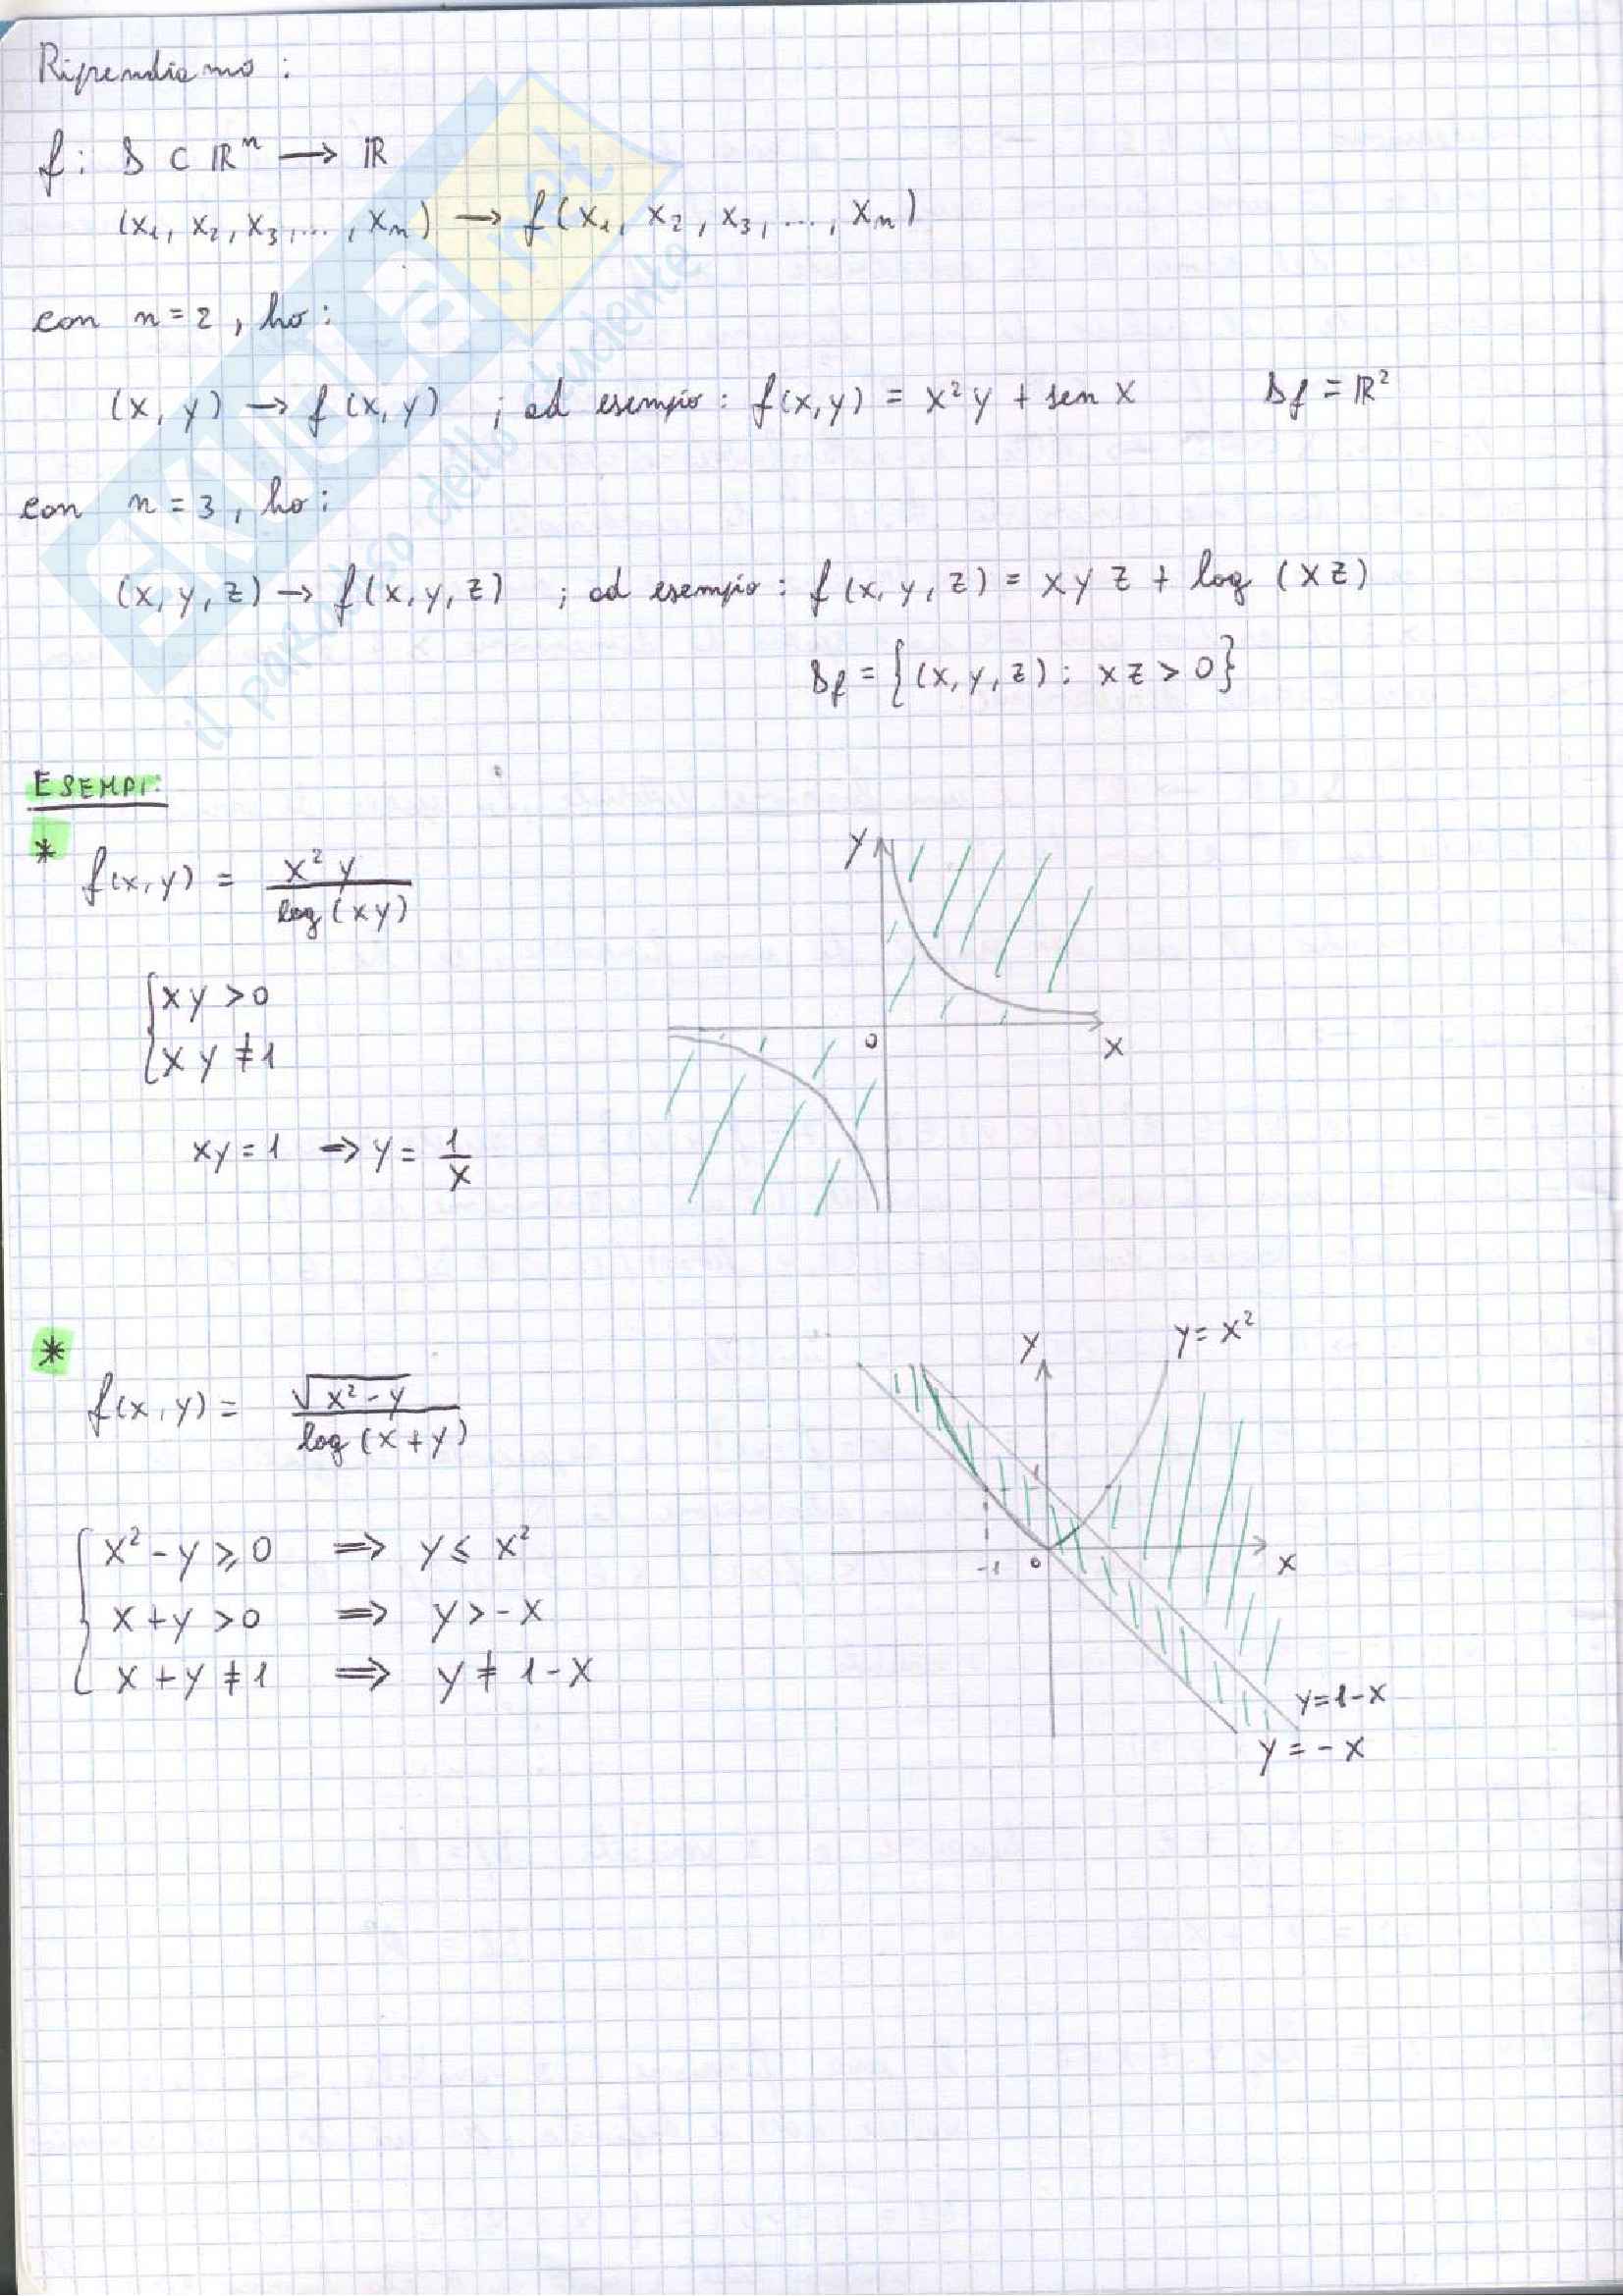 Riprendiamo:
f: D ⊂ ℝⁿ → ℝ
(x₁, x₂, x₃, ..., xₙ) → f(x₁, x₂, x₃, ..., xₙ)
con n = 2, ho:
(x, y) → f(x, y) ; ad esempio: f(x,y) = x²y + sen x Df = ℝ²
con n = 3, ho:
(x, y, z) → f(x, y, z) ; ad esempio: f(x, y, z) = xyz + log (xz)
Df = {(x, y, z): xz > 0}
SKUOLA.net
il paradiso dello studente
ESEMPI:
* f(x,y) = x²y / log(xy)
{ xy > 0
xy ≠ 1
xy = 1 ⇒ y = 1/x
y
0
x
* f(x,y) = √(x²-y) / log(x+y)
{ x²-y ≥ 0 ⇒ y ≤ x²
x+y > 0 ⇒ y > -x
x+y ≠ 1 ⇒ y ≠ 1-x
y
y = x²
1
-1
0
x
y = 1-x
y = -x